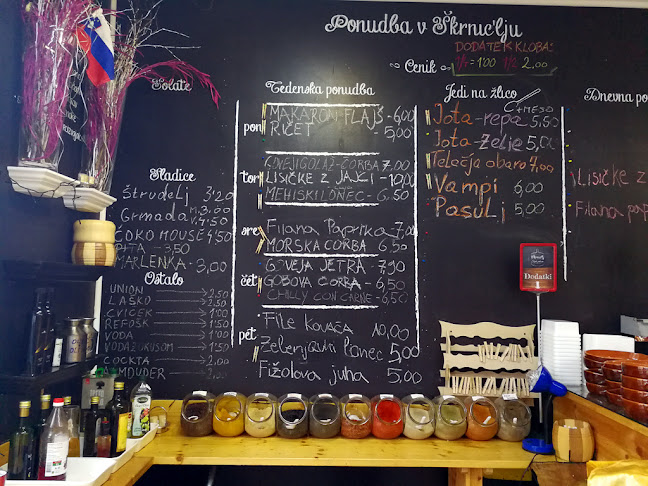 Ponudba v Škrnic'lju
DODATEK KLOBA:
1/2 = 2,00
Cenik
Solate
Sladice
ŠTRUDELJ 3'20
GRMADA
ČOKO MOUSE 4,50
PITA - 3,50
MARLENKA - 3,00
Ostalo
UNION 2,50
LAŠKO 2,50
CVIČEK 1'00
REFOŠK 1'50
VODA 1'00
VODA Z OKUSOM 1'50
COCKTA 2'00
Tedenska ponudba
pon
MAKARON FLAJŠ - 6,00
RIČET 5,00
tor
GOVEJI GOLAŽ-ČORBA 7,00
LISIČKE Z JAJCI - 10,00
MEHIŠKI LONEC - 6.50
sre
FILANA PAPRIKA - 7,00
MORSKA ČORBA 6,50
čet
GOVEJA JETRA - 7,90
GOBOVA ČORBA - 6,50
CHILLY CON CARNE - 6,50
pet
FILE KOVAČA 10,00
Zelenjavni lonec 5,00
Fižolova juha 5,00
Jedi na žlico
C + MESO
Jota - repa 5,50
Jota - zelje 5,00
Telečja obara 7,00
Vampi 6,00
Pasulj 5,00
Dnevna po
LISIČKE Z
FILANA PAP
Dodatki